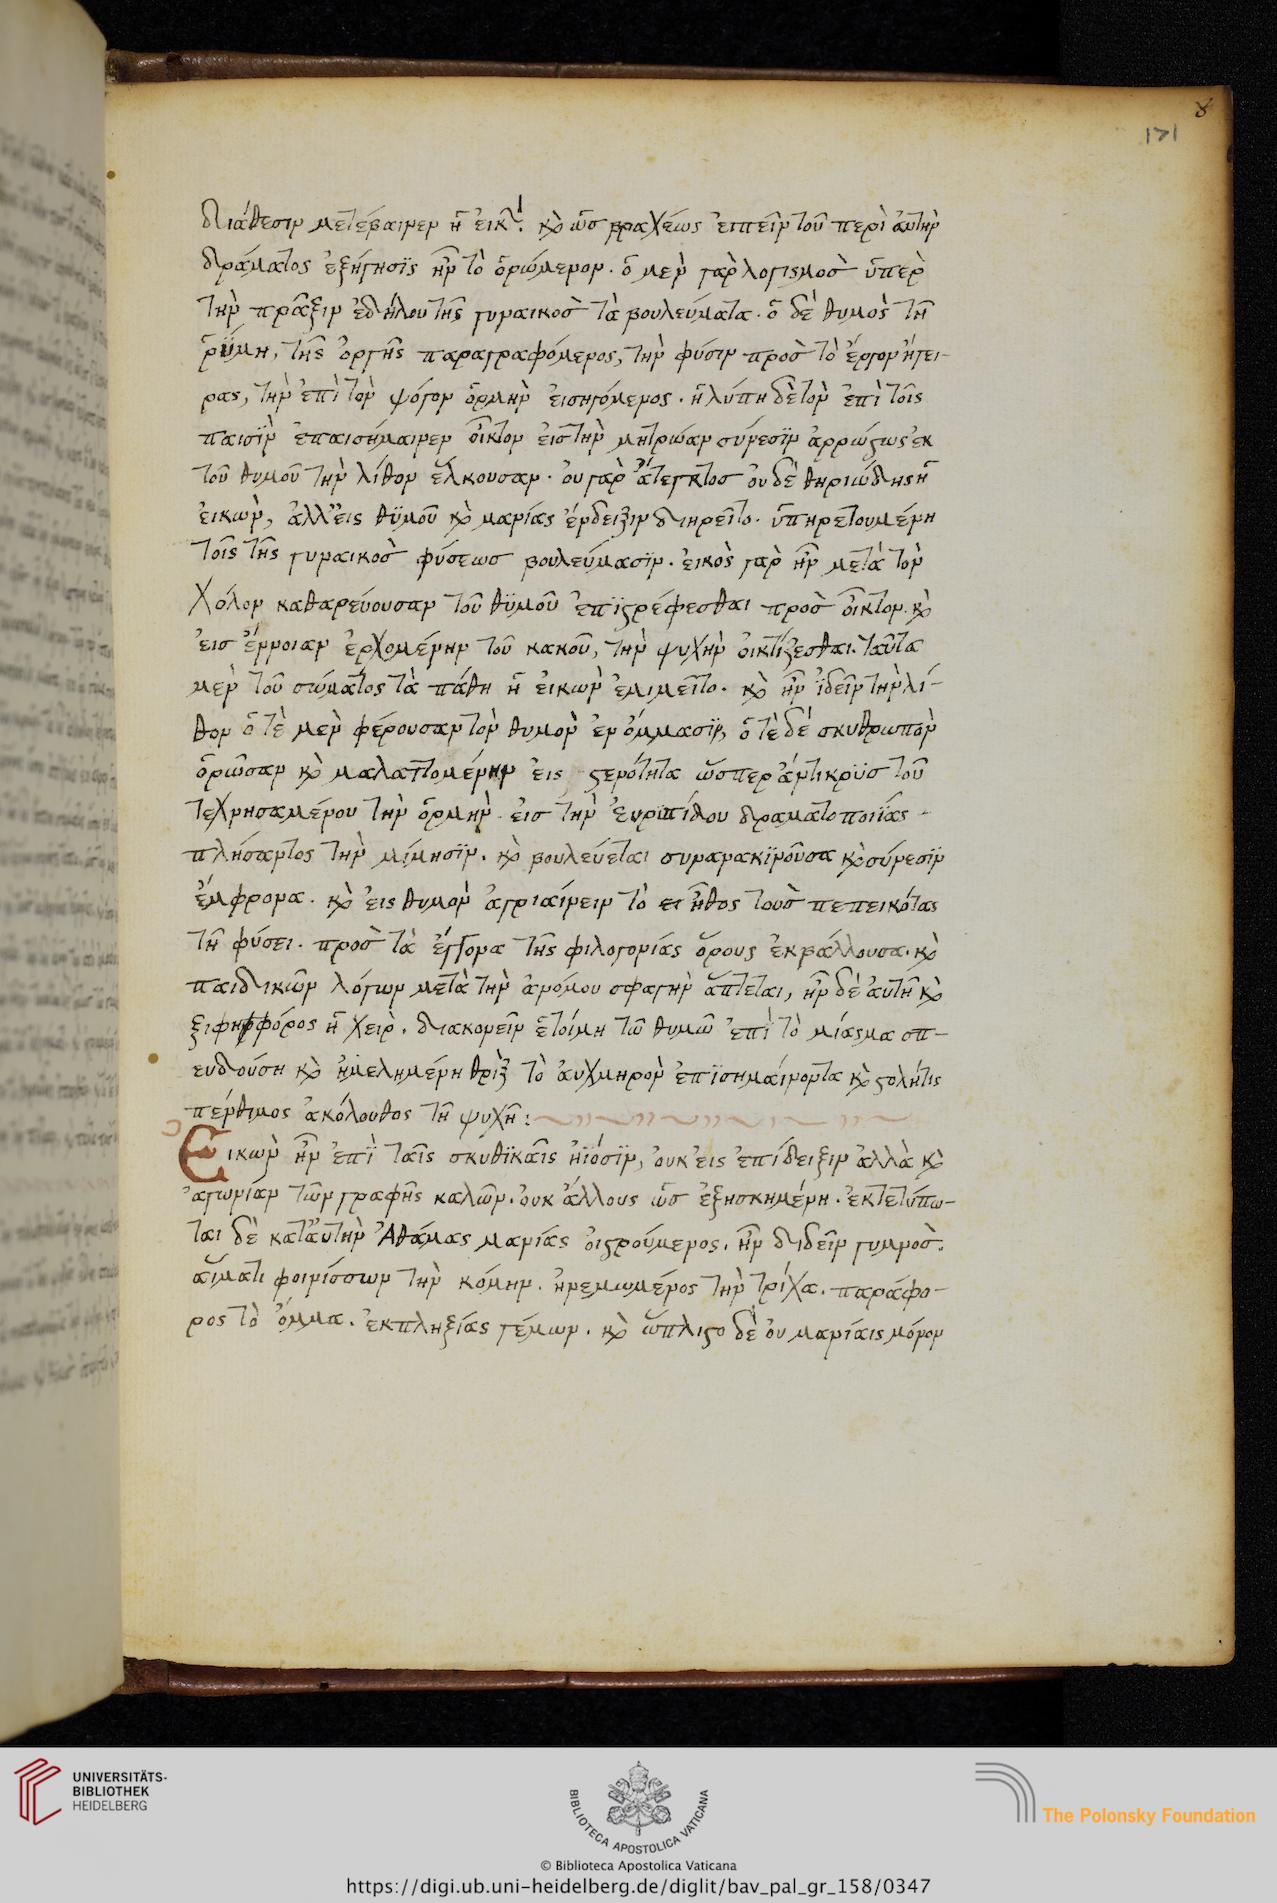 8
171
διάθεσιν μετέβαινεν ἡ εἰκ. κ ὡσ βραχέως εἰπεῖν τοῦ περὶ ἀυτὴν
δράματος ἐξήγησϊς ἦν τὸ ὁρώμενον. ὁ μὲν γὰρ λογισμοσ ὑπὲρ
τὴν πρᾶξιν ἐδήλου τῆς γυναικοσ τὰ βουλεύματα. ὁ δὲ θυμὸς τῆ
ῥύμη, τῆς ὀργῆς παραγραφόμενος, τὴν φύσιν προσ τὸ ἔργον ἤγει-
ρας, τὴν ἐπὶ τὸν ψόγον ὁρμὴν εἰσηγόμενος. ἡ λύπη δὲ τὸν ἐπὶ τοῖς
παισϊν ἐπαισήμαινεν οἶκτον εἰσ τὴν μητρώαν σύνεσϊν ἀρρώστως ἐκ
τοῦ θυμοῦ τὴν λίθον ἕλκουσαν. ου γὰρ ἄτεγκτοσ ουδὲ θηριώδης ἡ
εἰκὼν, ἀλλ' εἰς θϋμοῦ κ μανίας ἔνδειξιν διηρεῖτο. ὑπηρετουμένη
τοῖς τῆς γυναικοσ φύσεωσ βουλεύμασϊν. εἰκὸς γὰρ ἦν μετὰ τὸν
χόλον καθαρεύουσαν τοῦ θϋμοῦ ἐπϊστρέφεσθαι προσ οἶκτον. κ
εἰσ ἔννοιαν ἐρχομένην τοῦ κακοῦ, τὴν ψυχὴν οἰκτίζεσθαι. ταῦτα
μὲν τοῦ σώματος τὰ πάθη ἡ εἰκὼν ἐμιμεῖτο. κ ἦν ἰδεῖν τὴν λί-
θον ὁτὲ μὲν φέρουσαν τὸν θυμὸν ἐν ὄμμασϊν, ὁτὲ δὲ σκυθρωπὸν
ὁρῶσαν κ μαλαττομένην εἰς στενότητα ὥσπερ ἄντικρϋσ τοῦ
τεχνησαμένου τὴν ὁρμὴν. εἰσ τὴν ἐυριπίδου δραματοποιΐας
πλήσαντος τὴν μίμησϊν. κ βουλεύεται συνανακϊνοῦσα κ σύνεσϊν
ἔμφρονα. κ εἰς θυμὸν ἀγριαίνειν τὸ ἦθος τοὺσ πεπεικότας
τῆ φύσει. προσ τὰ ἔγγονα τῆς φιλογονίας ὅρους ἐκβάλλουσα. κ
παιδικῶν λόγων μετὰ τὴν ἀνόμου σφαγὴν ἅπτεται, ἦν δὲ ἀυτῆ κ
ξιφηφόρος ἡ χεὶρ. διακονεῖν ἑτοίμη τῶ θυμῶ ἐπὶ τὸ μίασμα σπ-
ευδούση κ ἠμελημένη θρὶξ τὸ ἀυχμηρὸν ἐπϊσημαίνοντα κ στολήτις
πένθιμος ἀκόλουθος τῆ ψυχῆ:
Εικὼν ἦν ἐπῒ ταῖς σκυθϊκαῖς ἠϊόσϊν, ὀυκ εἰς ἐπίδειξιν ἀλλὰ κ
ἀγωνίαν τῶν γραφῆς καλῶν. ουκ ἄλλους ὡσ ἐξησκημένη. ἐκτετύπω-
ται δὲ κατ' ἀυτὴν Ἀθάμας μανίας οἰστρούμενος. ἦν διδεῖν γυμνοσ.
αἵματι φοινίσσων τὴν κόμην. ἠνεμωμένος τὴν τρίχα. παράφο-
ρος τὸ ὄμμα. ἐκπληξίας γέμων. κ ὥπλιστο δὲ ου μανίαις μόνον
UNIVERSITÄTS-
BIBLIOTHEK
HEIDELBERG
BIBLIOTECA APOSTOLICA VATICANA
The Polonsky Foundation
© Biblioteca Apostolica Vaticana
https://digi.ub.uni-heidelberg.de/diglit/bav_pal_gr_158/0347